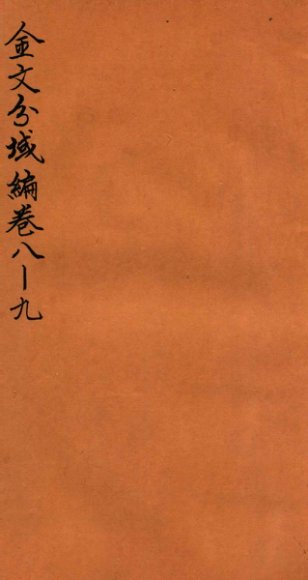 金文分域編卷八—九